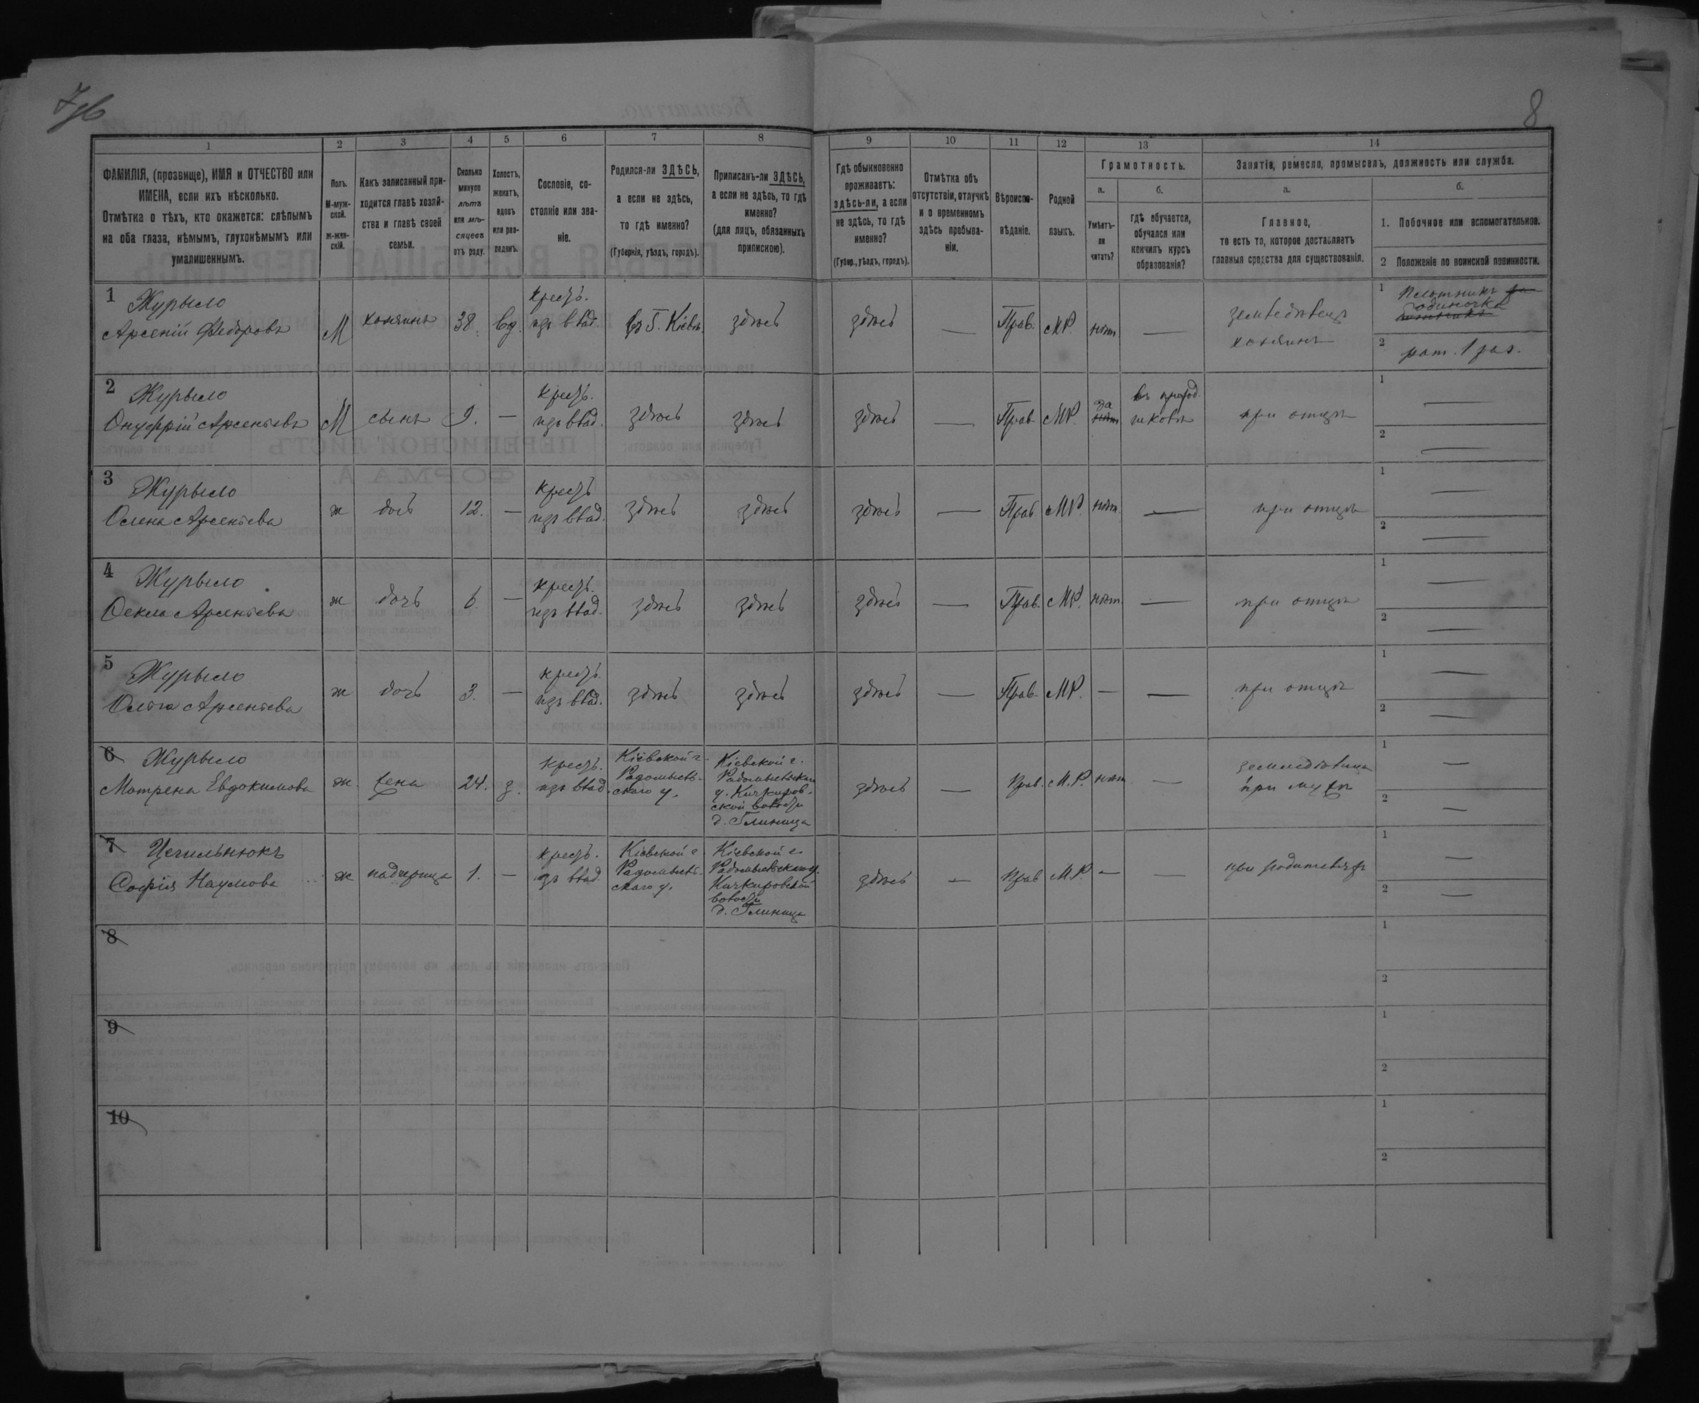 8
1
2
3
4
5
6
7
8
9
10
11
12
13
14
ФАМИЛІЯ, (прозвище), ИМЯ и ОТЧЕСТВО или
ИМЕНА, если ихъ нѣсколько.
Отмѣтка о тѣхъ, кто окажется: слѣпымъ
на оба глаза, нѣмымъ, глухонѣмымъ или
умалишеннымъ.
Полъ.
М-муж-
ской.
Ж-жен-
скій.
Какъ записанный при-
ходится главѣ хозяй-
ства и главѣ своей
семьи.
Сколько
минуло
лѣтъ
или мѣ-
сяцевъ
отъ роду.
Холостъ,
женатъ,
вдовъ
или раз-
веденъ.
Сословіе, со-
стояніе или зва-
ніе.
Родился-ли ЗДѢСЬ,
а если не здѣсь,
то гдѣ именно?
(Губернія, уѣздъ, городъ).
Приписанъ-ли ЗДѢСЬ,
а если не здѣсь, то гдѣ
именно?
(для лицъ, обязанныхъ
припискою).
Гдѣ обыкновенно
проживаетъ:
здѣсь-ли, а если
не здѣсь, то гдѣ
именно?
(Губер., уѣздъ, городъ).
Отмѣтка объ
отсутствіи, отлучкѣ
и о временномъ
здѣсь пребыва-
ніи.
Вѣроиспо-
вѣданіе.
Родной
языкъ.
Грамотность.
а.
Умѣетъ-
ли
читать?
б.
гдѣ обучается,
обучался или
кончилъ курсъ
образованія?
Занятія, ремесло, промыселъ, должность или служба.
а.
Главное,
то есть то, которое доставляетъ
главныя средства для существованія.
б.
1. Побочное или вспомогательное.
2 Положеніе по воинской повинности.
1 Журыло
Арсеній Ѳедоровъ
М
хозяинъ
38.
вд.
крест.
изъ влад.
въ г. Кіевѣ
здѣсь
здѣсь
—
Прав.
М.Р.
нѣт
—
земледѣлецъ
хозяинъ
1 Плотникъ
одиночка
2 рат. 1 раз.
2 Журыло
Онуфрій Арсентьевъ
М
сынъ
9.
—
крест.
изъ влад.
здѣсь
здѣсь
здѣсь
—
Прав.
М.Р.
да
нѣт
въ народ.
школѣ
при отцѣ
1 —
2 —
3 Журыло
Олена Арсентьева
ж
дочь
12.
—
крест.
изъ влад.
здѣсь
здѣсь
здѣсь
—
Прав.
М.Р.
нѣт
—
при отцѣ
1 —
2 —
4 Журыло
Ѳекла Арсентьева
ж
дочъ
6.
—
крест.
изъ влад.
здѣсь
здѣсь
здѣсь
—
Прав.
М.Р.
нѣт
—
при отцѣ
1 —
2 —
5 Журыло
Ольга Арсентьева
ж
дочъ
3.
—
крест.
изъ влад.
здѣсь
здѣсь
здѣсь
—
Прав.
М.Р.
—
—
при отцѣ
1 —
2 —
6 Журыло
Матрена Евдокимова
ж.
жена
24.
з.
крест.
изъ влад.
Кіевской г.
Радомысль-
скаго у.
Кіевской г.
Радомысльскаго
у. Кичкиров-
ской волости
д. Глиница
здѣсь
—
Прав.
М.Р.
нѣт
—
земледѣлица
при мужѣ
1 —
2 —
7
Софія Наумова
ж
падчерица
1.
—
крест.
изъ влад.
Кіевской г.
Радомысль-
скаго у.
Кіевской г.
Радомысльскаго у.
Кичкировской
волости
д. Глиница
здѣсь
—
Прав.
М.Р.
—
—
при родителяхъ
1 —
2 —
8
1
2
9
1
2
10
1
2